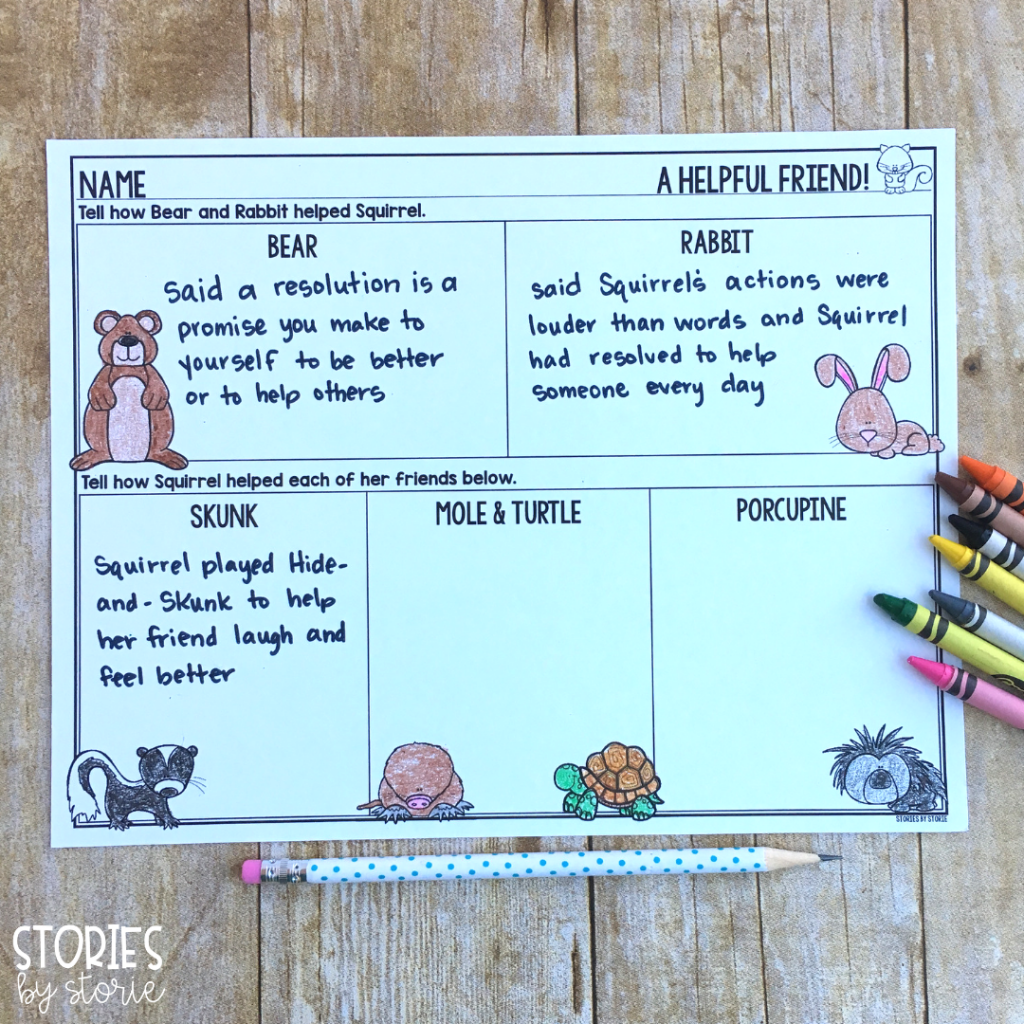 NAME
A HELPFUL FRIEND!
Tell how Bear and Rabbit helped Squirrel.
BEAR
said a resolution is a
promise you make to
yourself to be better
or to help others
RABBIT
said Squirrel's actions were
louder than words and Squirrel
had resolved to help
someone every day
Tell how Squirrel helped each of her friends below.
SKUNK
Squirrel played Hide-
and-Skunk to help
her friend laugh and
feel better
MOLE & TURTLE
PORCUPINE
STORIES BY STORIE
STORIES
by storie